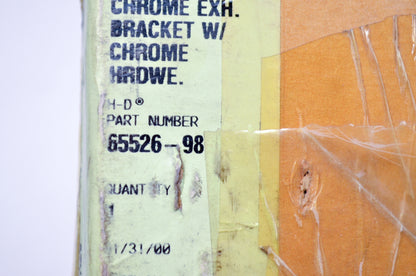 CHROME EXH.
BRACKET W/
CHROME
HRDWE.
H-D®
PART NUMBER
65526-98
QUANTITY
1
1/31/00